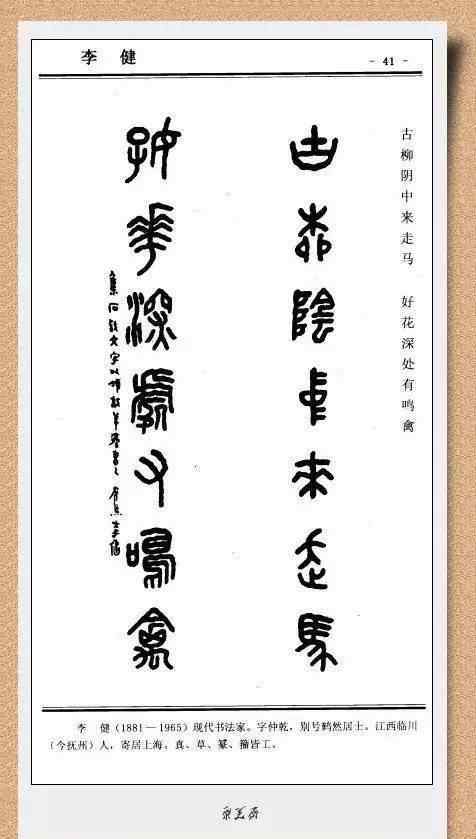 李 健
- 41 -
古柳阴中来走马 好花深处有鸣禽
古柳陰中来走馬
好華深處又鳴禽
李 健（1881—1965）现代书法家。字仲乾，别号鹤然居士。江西临川
（今抚州）人，寄居上海。真、草、篆、籀皆工。